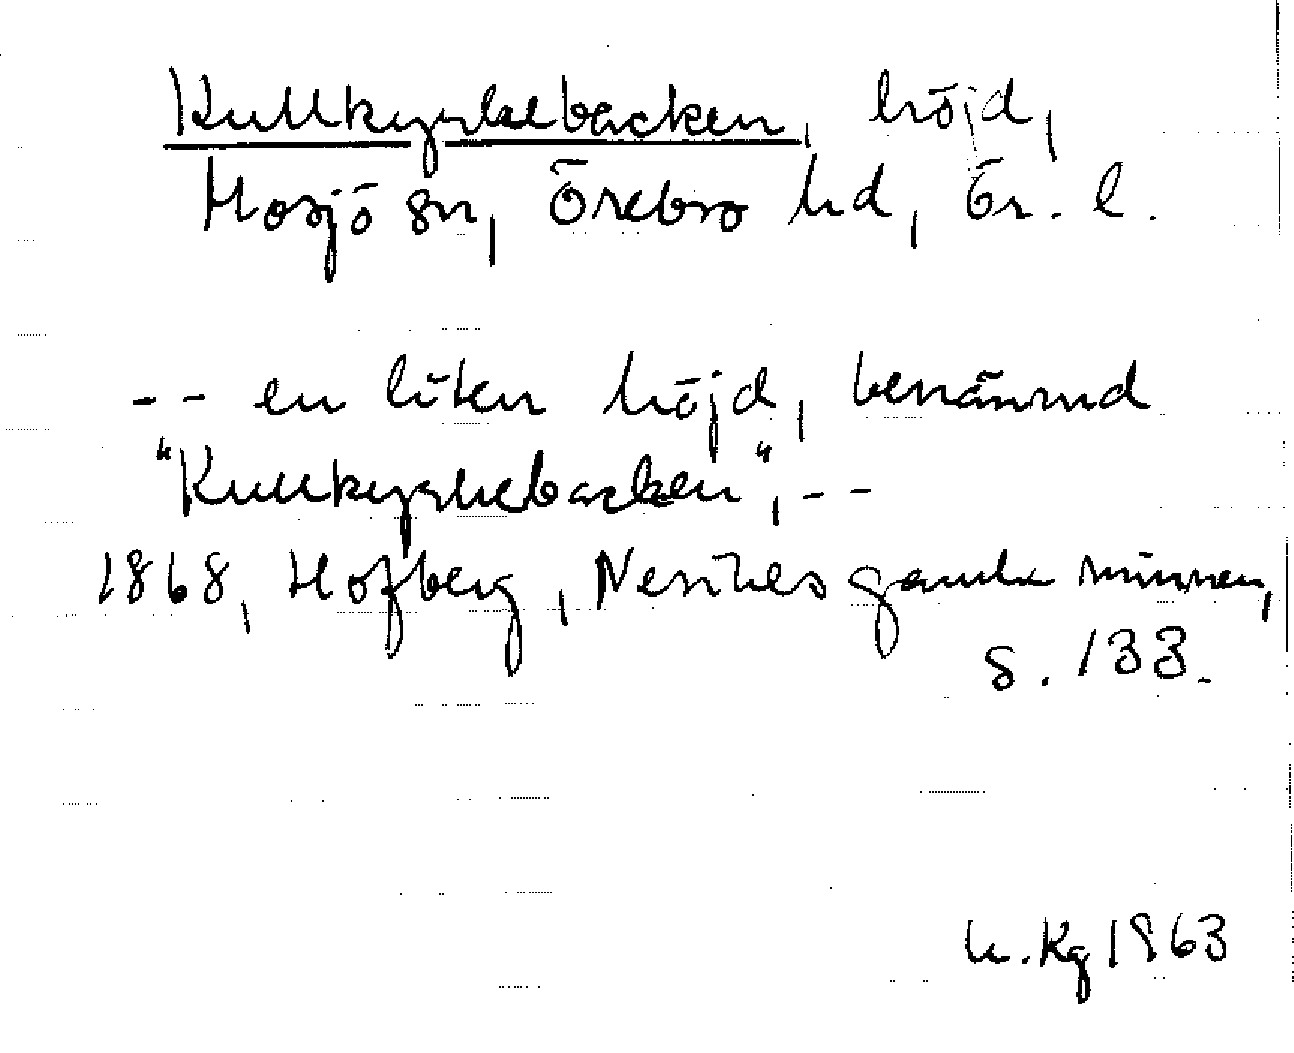 Kullkyrkebacken, höjd,
Mosjö sn, Örebro hd, Ör. l.
-- en liten höjd, benämnd
"Kullkyrkebacken", --
1868, Hofberg, Nerikes gamla minnen,
s. 133.
Kg 1963